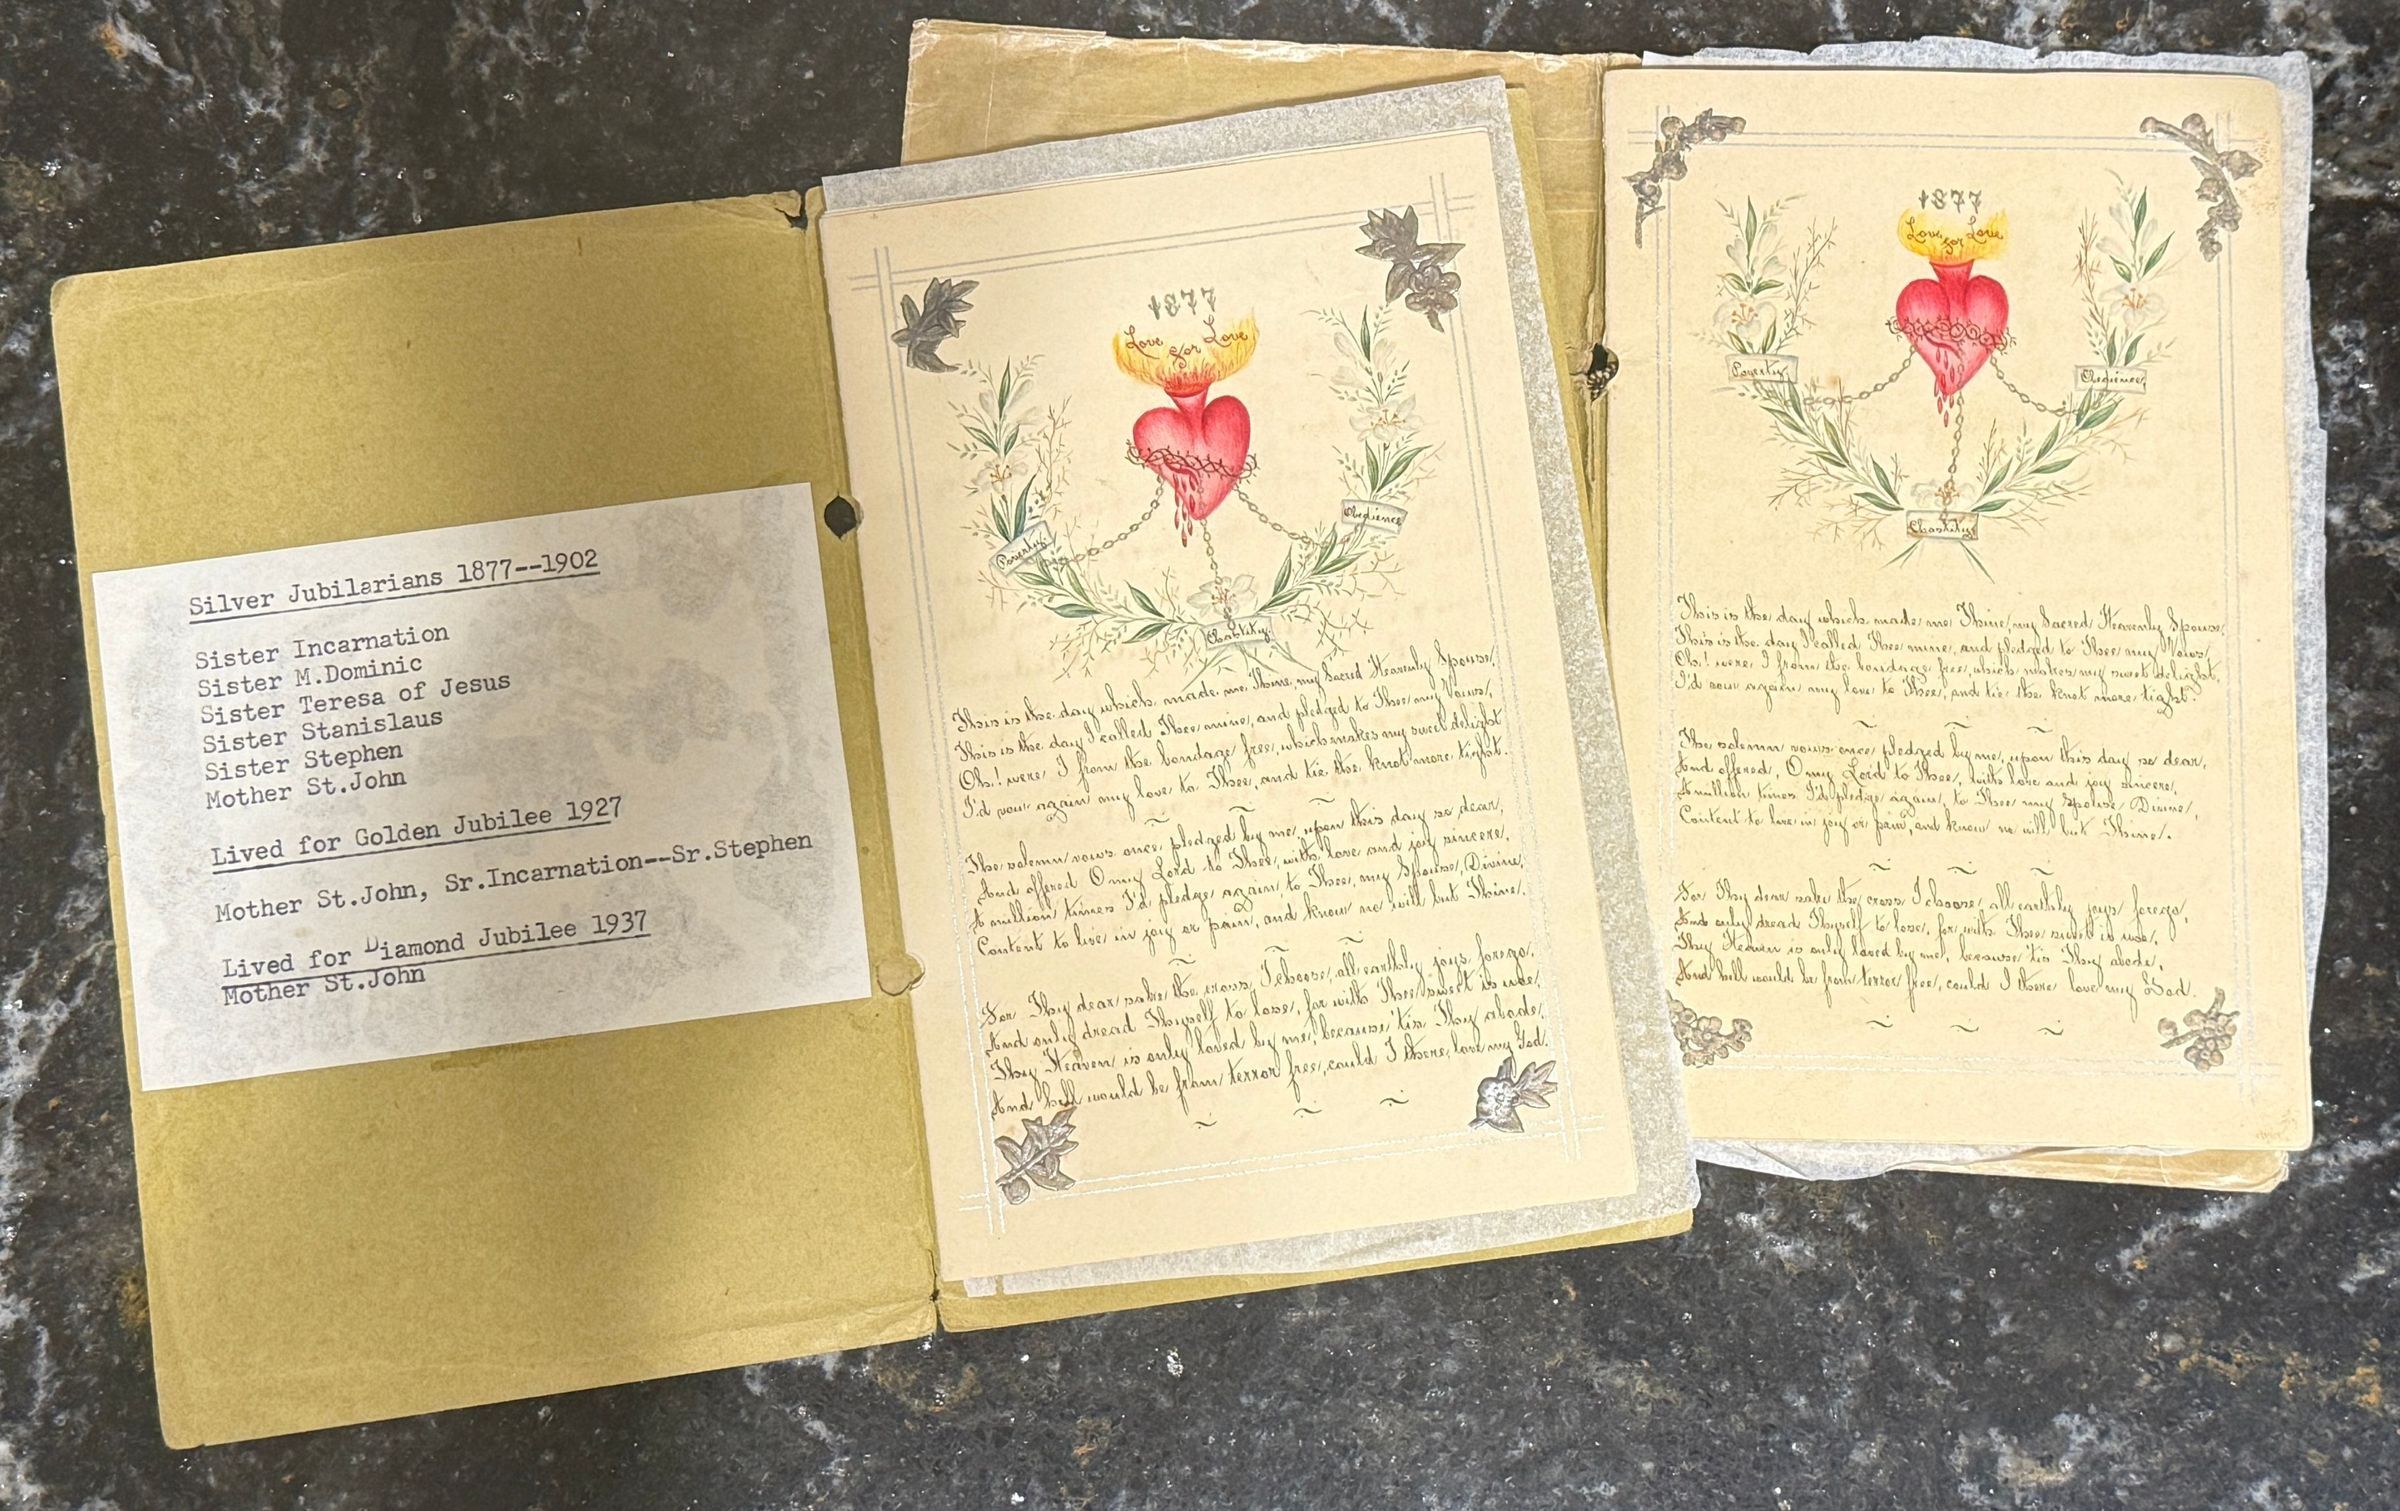 Silver Jubilarians 1877--1902
Sister Incarnation
Sister M.Dominic
Sister Teresa of Jesus
Sister Stanislaus
Sister Stephen
Mother St.John
Lived for Golden Jubilee 1927
Mother St.John, Sr.Incarnation--Sr.Stephen
Lived for Diamond Jubilee 1937
Mother St.John
1877
Love for Love
Poverty
Obedience
Chastity
This is the day which made me Thine, my Sacred Heavenly Spouse,
This is the day I called Thee mine, and pledged to Thee my Vows,
Oh! were I from the bondage free, which makes my sweet delight
I'd vow again my love to Thee, and tie the knot more tight.
The solemn vows once pledged by me, upon this day so dear,
And offered O my Lord to Thee, with love and joy sincere.
A million times I'd pledge again, to Thee, my Spouse, Divine,
Content to live in joy or pain, and know no will but Thine.
For Thy dear sake the cross, I choose, all earthly joys forego,
And only dread Thyself to lose, for with Thee sweet is woe,
Thy Heaven is only loved by me, because 'tis Thy abode,
And hell would be from terror free, could I there, love my God.
1877
Love for Love
Poverty
Obedience
Chastity
This is the day which made me Thine, my Sacred Heavenly Spouse,
This is the day I called Thee mine, and pledged to Thee my Vows,
Oh! were I from the bondage free, which makes my sweet delight,
I'd vow again my love to Thee, and tie the knot more tight.
The solemn vows once pledged by me, upon this day so dear,
And offered, O my Lord to Thee, with love and joy sincere,
A million times I'd pledge again, to Thee my Spouse Divine,
Content to live in joy or pain, and know no will but Thine.
For Thy dear sake the cross I choose, all earthly joys forego,
And only dread Thyself to lose, for with Thee sweet is woe,
Thy Heaven is only loved by me, because 'tis Thy abode,
And hell would be from terror free, could I there love my God.